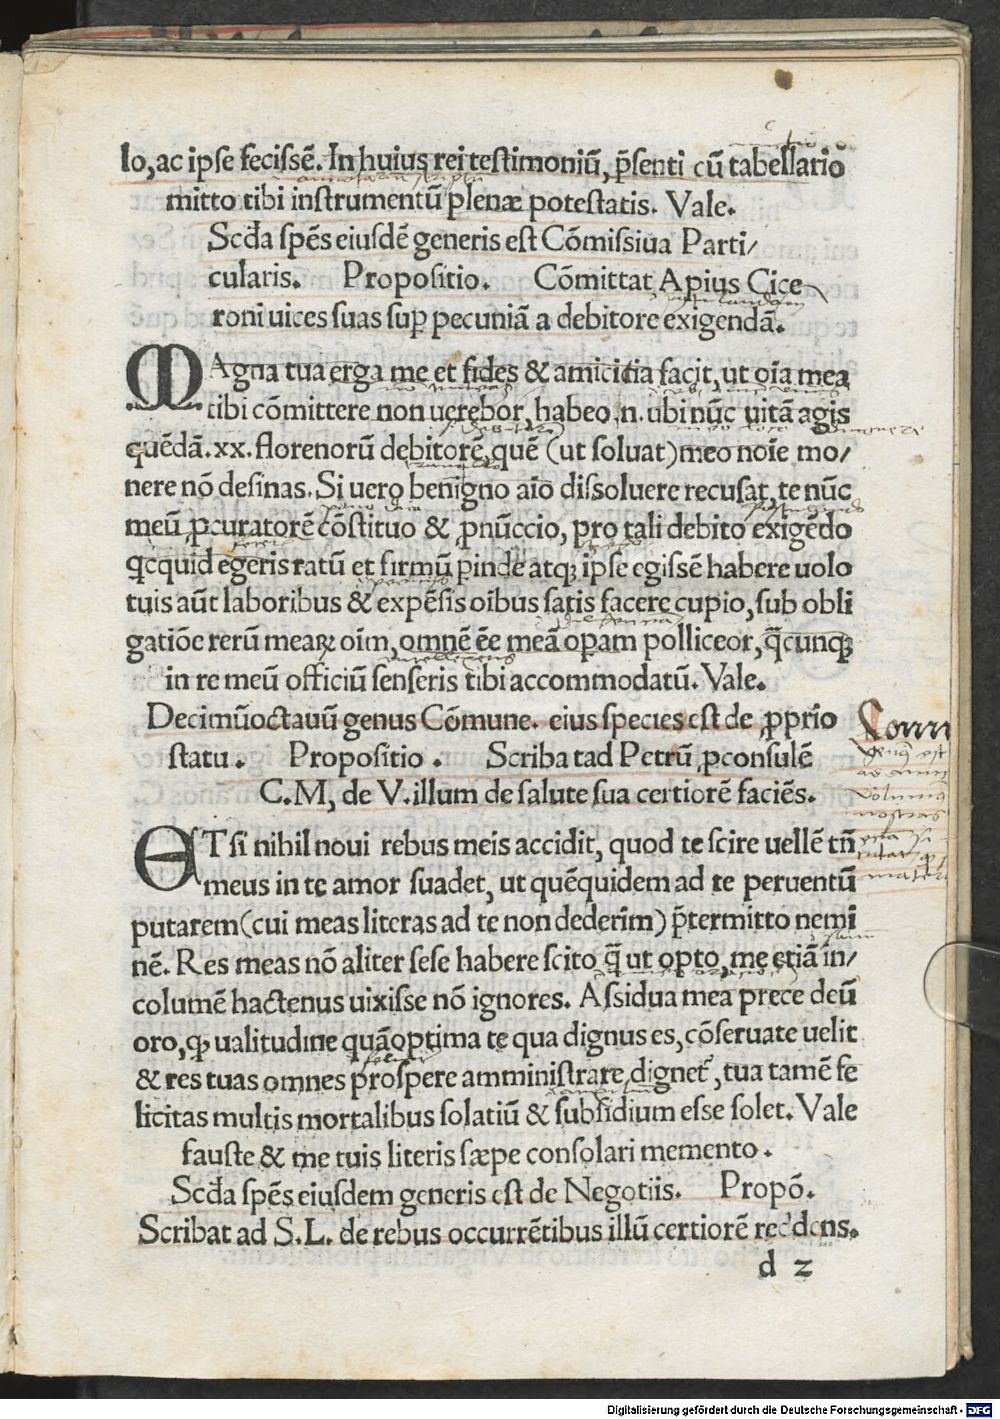 lo, ac ipse fecissē. In huius rei testimoniū, p̄senti cū tabellario
mitto tibi instrumentū plenæ potestatis. Vale.
Scd̄a spēs eiusdē generis est Cōmissiua Parti/
cularis. Propositio. Cōmittat Apius Cice
roni uices suas suꝑ pecuniā a debitore exigendā.
MAgna tua erga me et fides & amicitia facit, ut oīa mea
tibi cōmittere non uerebor, habeo .n. ubi nūc uitā agis
quēdā .xx. florenorū debitorē, quē (ut soluat) meo noīe mo/
nere nō desinas. Si uero benigno aīo dissoluere recusat, te nūc
meū ꝓcuratorē cōstituo & ꝓnūccio, pro tali debito exigēdo
qcquid egeris ratū et firmū ꝑinde atqꝫ ipse egissē habere uolo
tuis aūt laboribus & expēsis oībus satis facere cupio, sub obli
gatiōe rerū meaꝝ oīm, omnē ēe meā opam polliceor, q̄cunqꝫ
in re meū officiū senseris tibi accommodatū. Vale.
Decimūoctauū genus Cōmune. eius species est de ꝓprīo
statu. Propositio. Scriba tad Petrū ꝓconsulē
C.M, de V. illum de salute sua certiorē faciēs.
ETsi nihil noui rebus meis accidit, quod te scire uellē tn̄
meus in te amor suadet, ut quēquidem ad te peruentū
putarem (cui meas literas ad te non dederim) p̄termitto nemi
nē. Res meas nō aliter sese habere scito q̄ ut opto, me etiā in/
columē hactenus uixisse nō ignores. Assidua mea prece deū
oro, ꝙ ualitudine quāoptima te qua dignus es, cōseruate uelit
& res tuas omnes prospere amministrare dignet᷑, tua tamē fe
licitas multis mortalibus solatiū & subsidium esse solet. Vale
fauste & me tuis literis sæpe consolari memento.
Scd̄a spēs eiusdem generis est de Negotiis. Propō.
Scribat ad S.L. de rebus occurrētibus illū certiorē reddens.
d 2
Digitalisierung gefördert durch die Deutsche Forschungsgemeinschaft - DFG